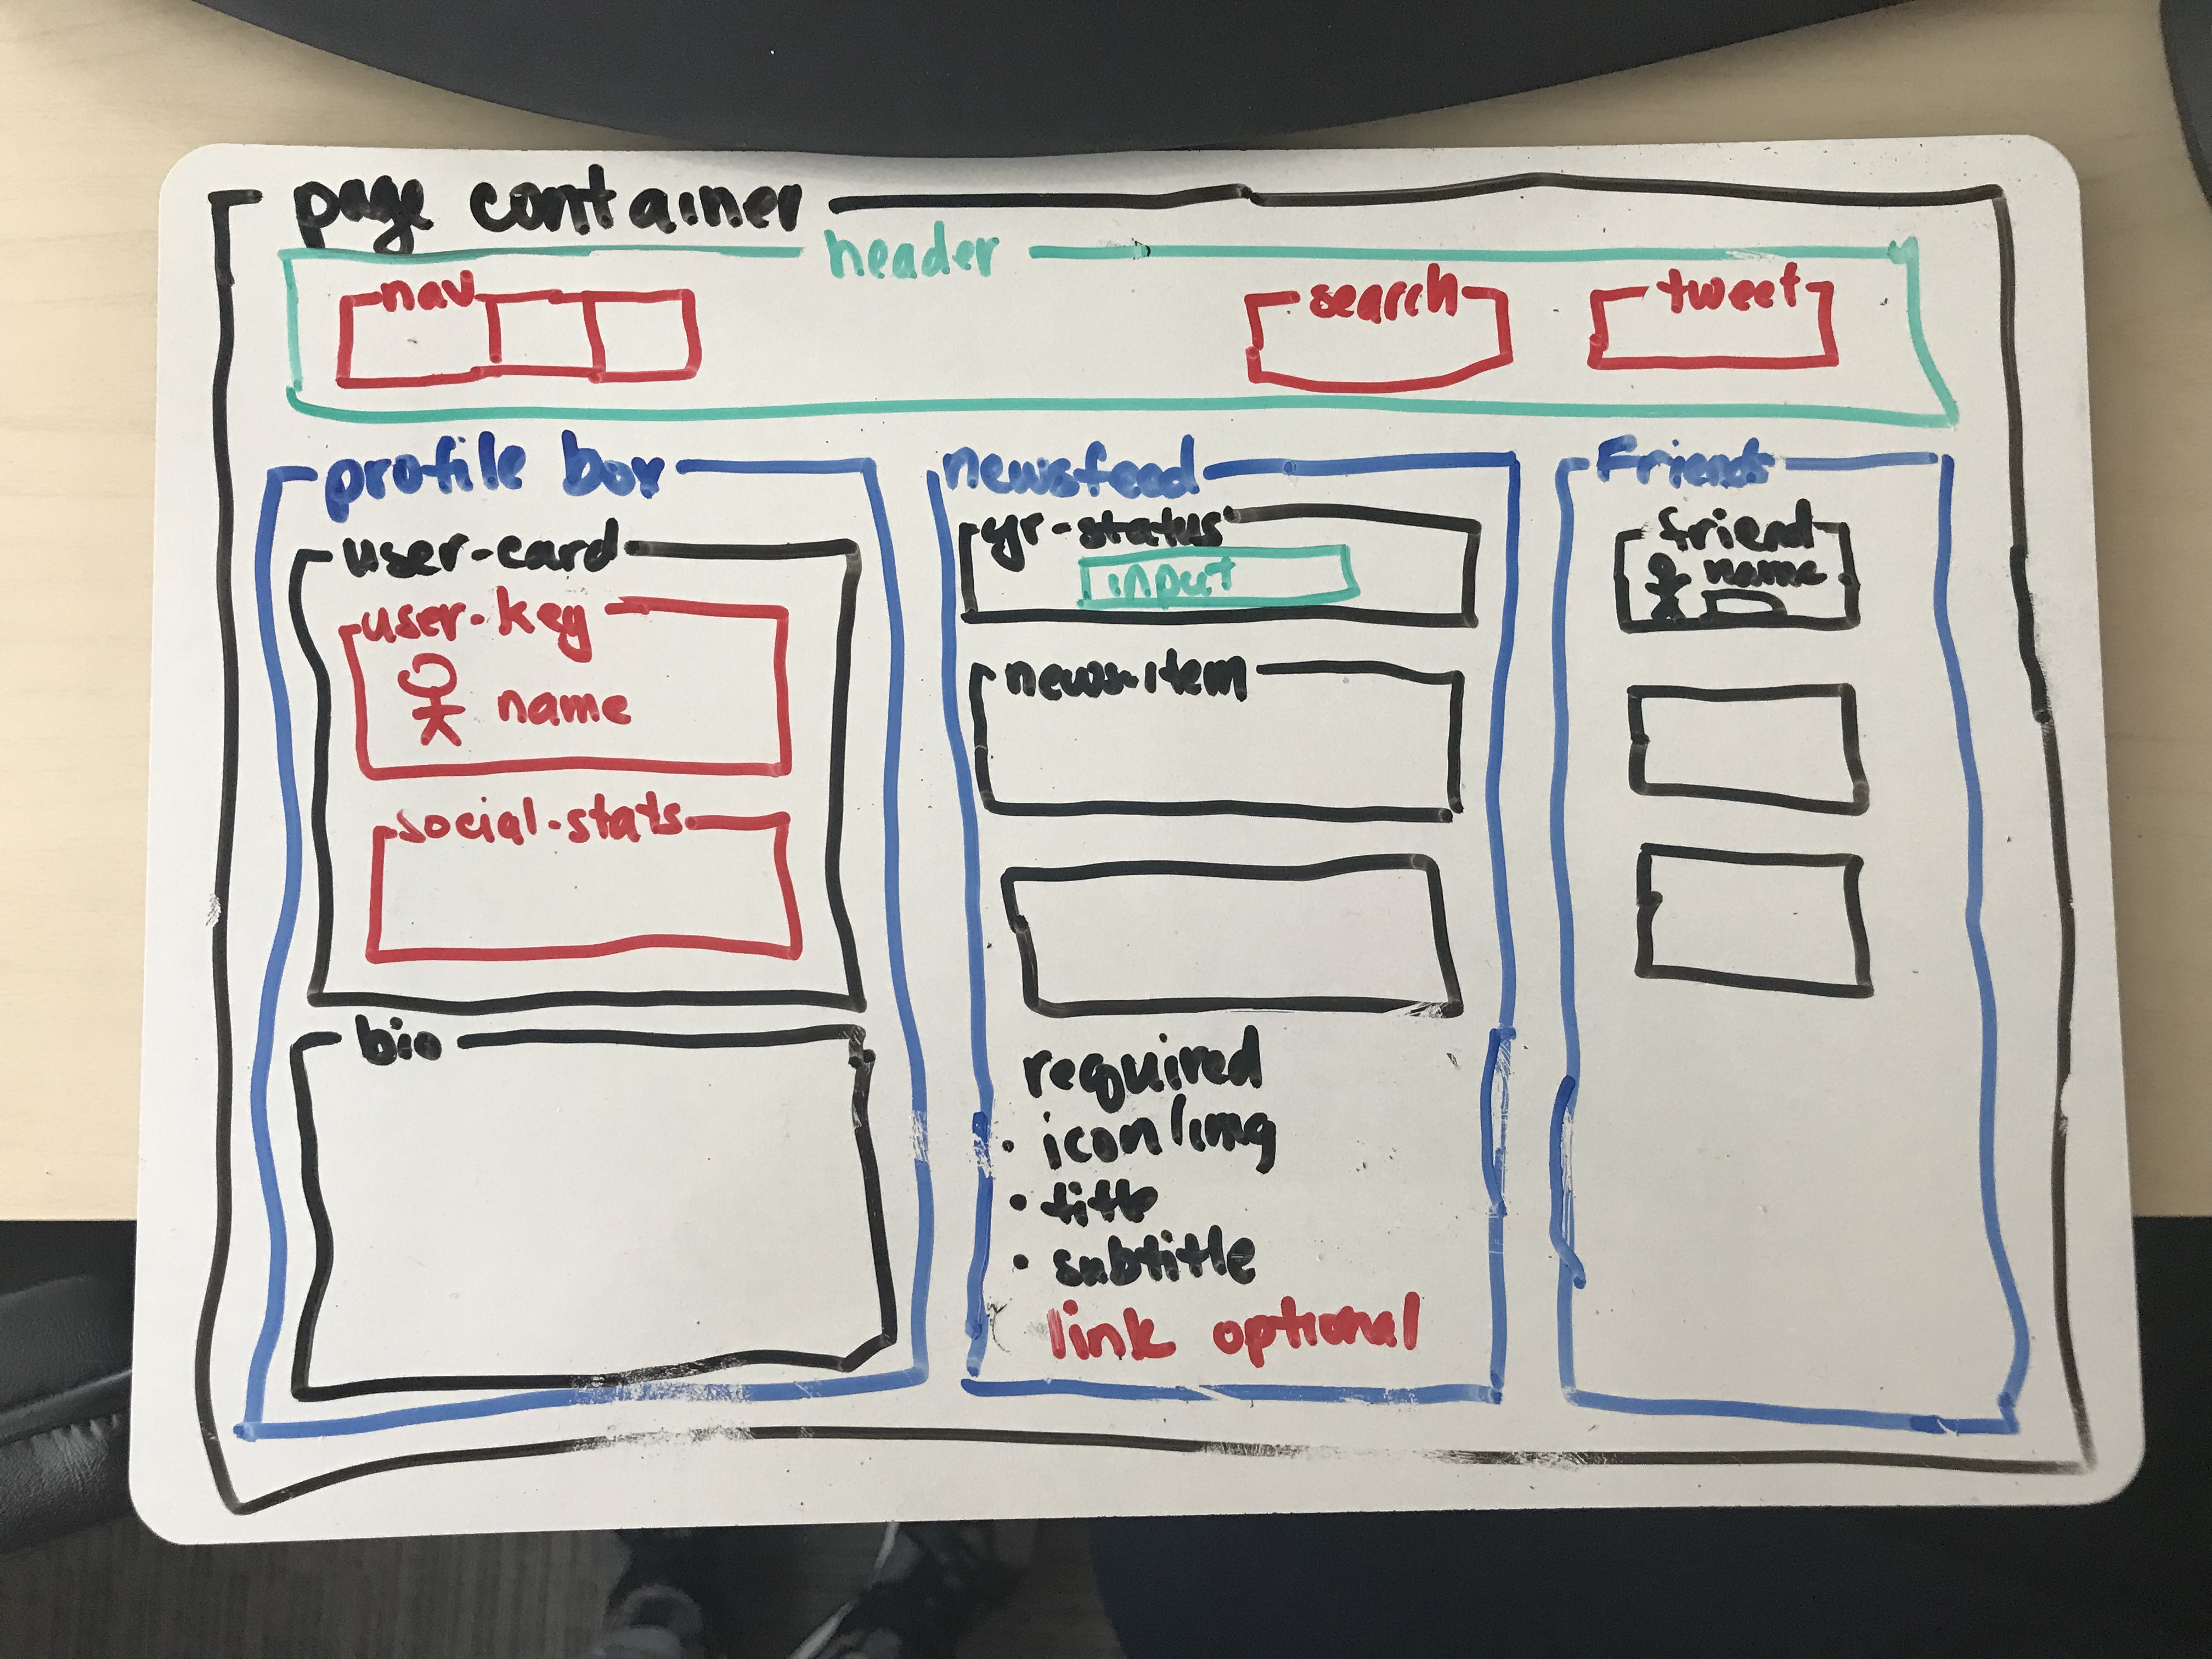 page container
header
nav
search
tweet
profile box
user-card
user-key
name
social-stats
bio
newsfeed
yr-status
input
news-item
required
• icon/img
• title
• subtitle
link optional
friends
friend
name